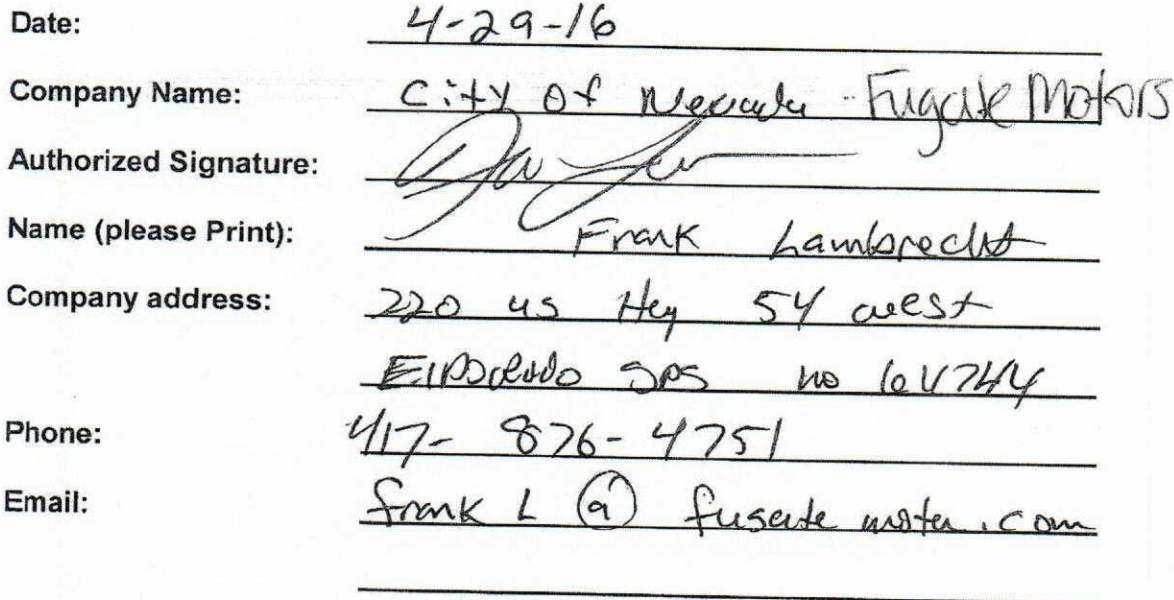 Date: 4-29-16
Company Name: City of Nevada - Fugate Motors
Authorized Signature:
Name (please Print): Frank Lambrecht
Company address: 220 US Hwy 54 west
El Dorado SPS MO 64744
Phone: 417-876-4751
Email: frank L @ fugate motor.com